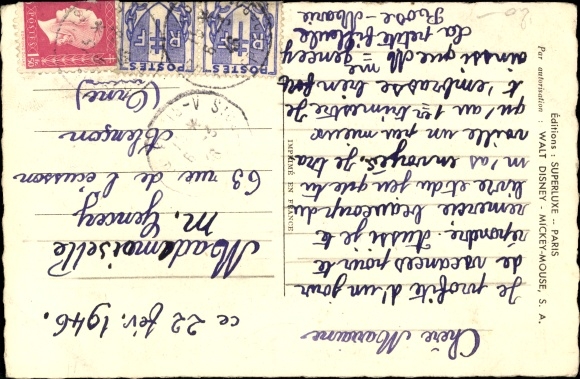 ce 22 fév. 1946.
Chère Marraine
Je profite d'un jour
de vacances pour te
répondre. Aussi je te
remercie beaucoup du
livre et du jeu que tu
m'as envoyés. Je tra
vaille un peu mieux
qu'au 1er trimestre. Je
t'embrasse bien fort
ainsi que Me Gencey
Ta petite filleule
Rose-Marie
Mademoiselle
M. Gencey
63 rue de l'écusson
Alençon
(Orne)
IMPRIMÉ EN FRANCE
Éditions : SUPERLUXE - PARIS
Par autorisation : WALT DISNEY - MICKEY-MOUSE, S. A.
POSTES
1F50
RF
POSTES
RF
POSTES